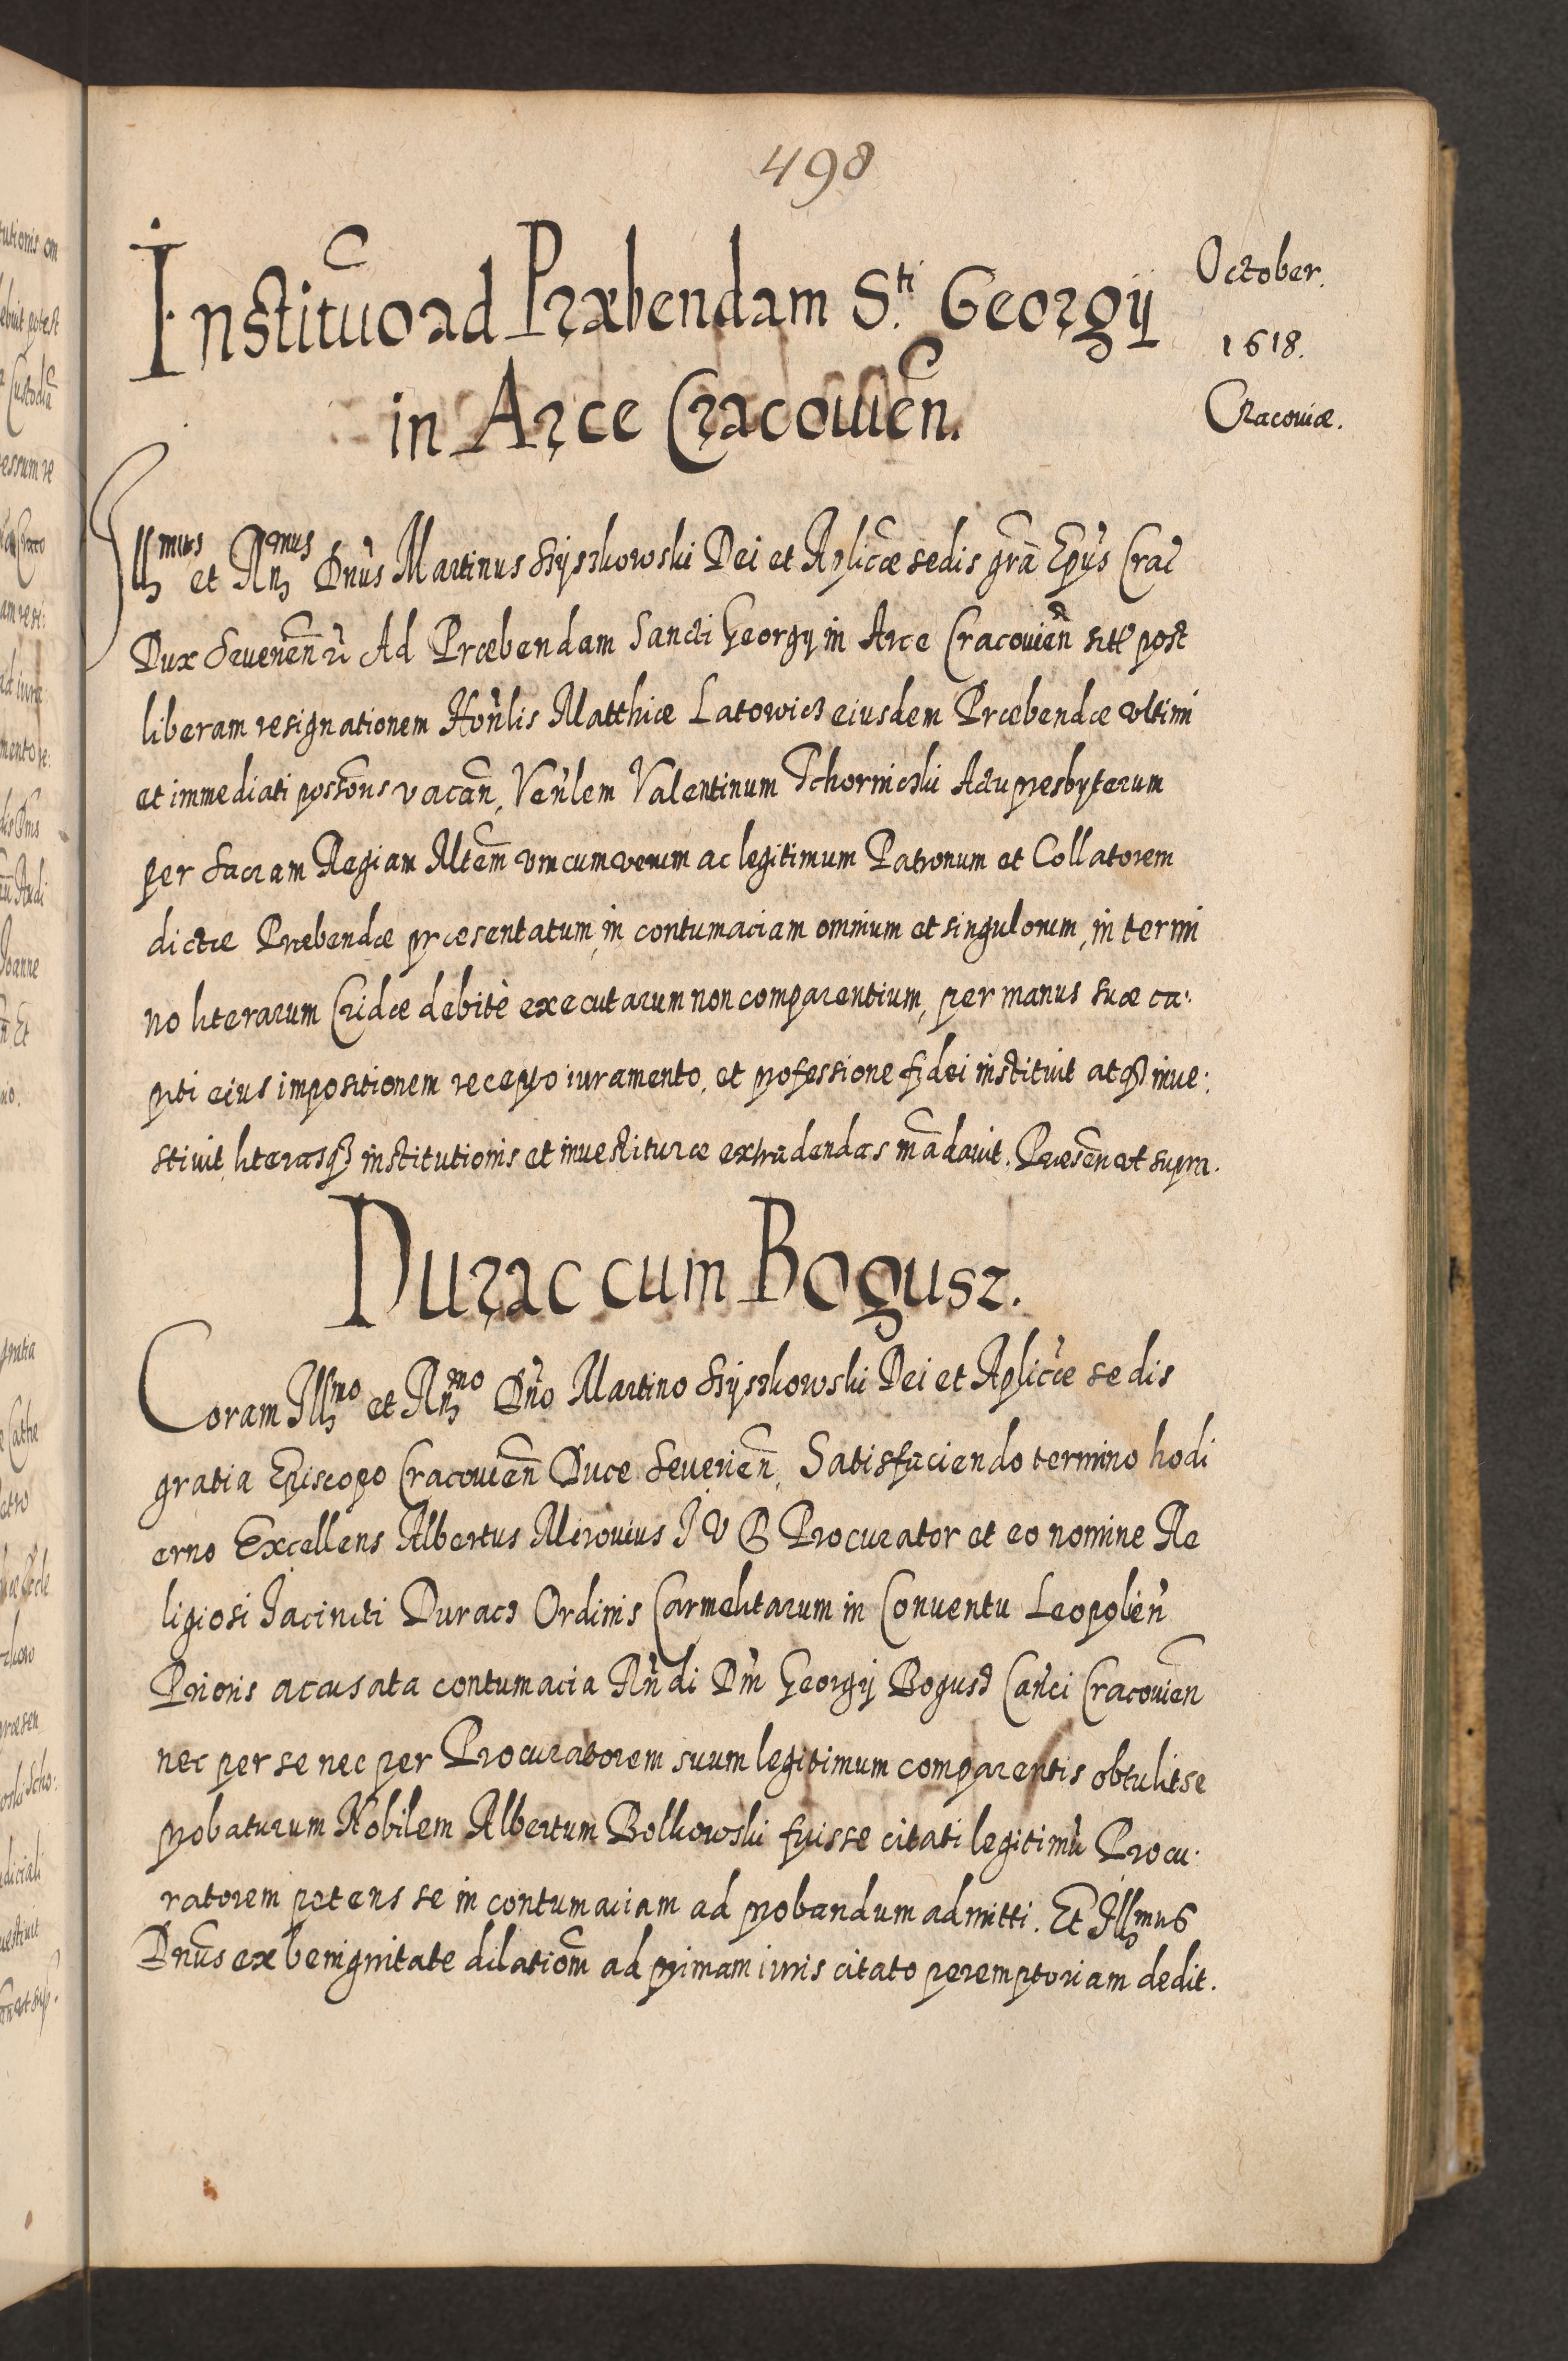 498
Institũo ad Præbendam S.ti Georgij
in Arce Cracovień.
October.
1618.
Cracoviæ.
Illmus et Rnmus Dnus Martinus Szyszkowski Dei et Aplicæ sedis grã Epus Crac
Dux Severień Ad Præbendam Sancti Georgij in Arce Cracovień post
liberam resignationem Honlis Matthiæ Latowicz eiusdem Præbendæ ultimi
et immediati possons vacań, Venlem Valentinum Tchornicki Actu presbyterum
per Sacram Regiam Mtem unicum verum ac legitimum Patronum et Collatorem
dictæ Præbendæ præsentatum, in contumaciam omnium et singulorum, in termi
no literarum Cridæ debitè executarum non comparentium, per manus suæ ca:
piti eius impositionem recepto iuramento, et professione fidei instituit atq inve:
stivit, literasq institutionis et investituræ extradendas mãdavit. Præseń ut supra.
Durac cum Bogusz.
Coram Illmo et Rnmo Dno Martino Szyszkowski Dei et Aplicæ sedis
gratia Episcopo Cracovień Duce Severień, Satisfaciendo termino hodi
erno Excellens Albertus Mirovius I V D Procurator et eo nomine Re
ligiosi Jacincti Duracz Ordinis Carmelitarum in Conventu Leopolień
Prioris accusata contumacia Rndi Dni Georgij Bogusz Canci Cracovień
nec per se nec per Procuratorem suum legitimum comparentis obtulit se
probaturum Nobilem Albertum Bolkowski fuisse citati legitimũ Procu:
ratorem petens se in contumaciam ad probandum admitti. Et Illmus
Dnus ex benignitate dilationẽ ad primam iuris citato peremptoriam dedit.